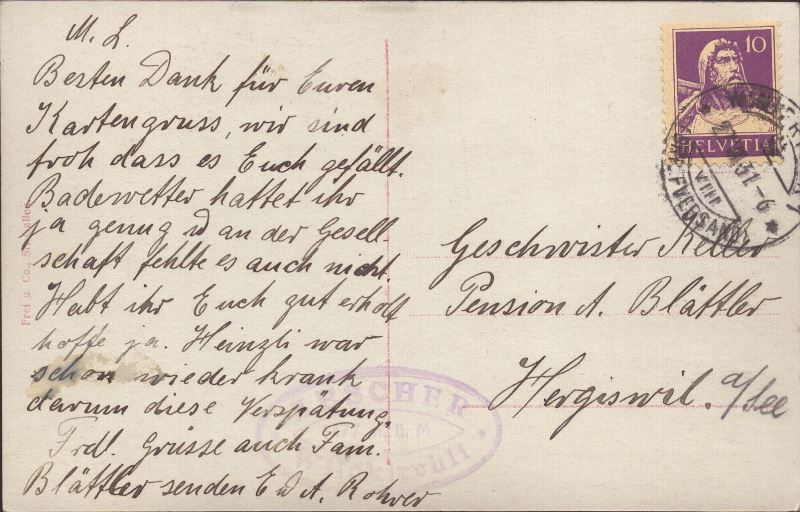 M. L.
Besten Dank für Euren
Kartengruss, wir sind
froh dass es Euch gefällt.
Badewetter hattet ihr
ja genug u an der Gesell-
schaft fehlte es auch nicht
Habt ihr Euch gut erholt
hoffe ja. Heinzli war
schon wieder krank
darum diese Verspätung"
Frdl. Grüsse auch Fam.
Blättler senden E u A. Rohrer
Frei u. Co., St. Gallen
10
HELVETIA
BRIEFVERSAND
VIII
Geschwister Keller
Pension A. Blättler
Hergiswil. a/See